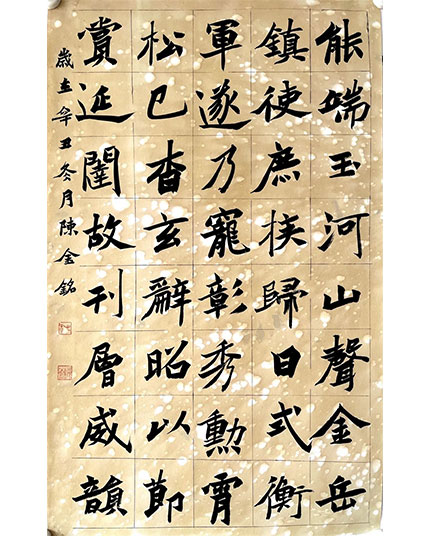 能端玉河山聲金岳
鎮使庶歸日式衡
軍遂乃寵彰秀勳霄
松已杳玄辭昭以節
賞延閨故刊層威韻
歲在辛丑冬月陳金銘